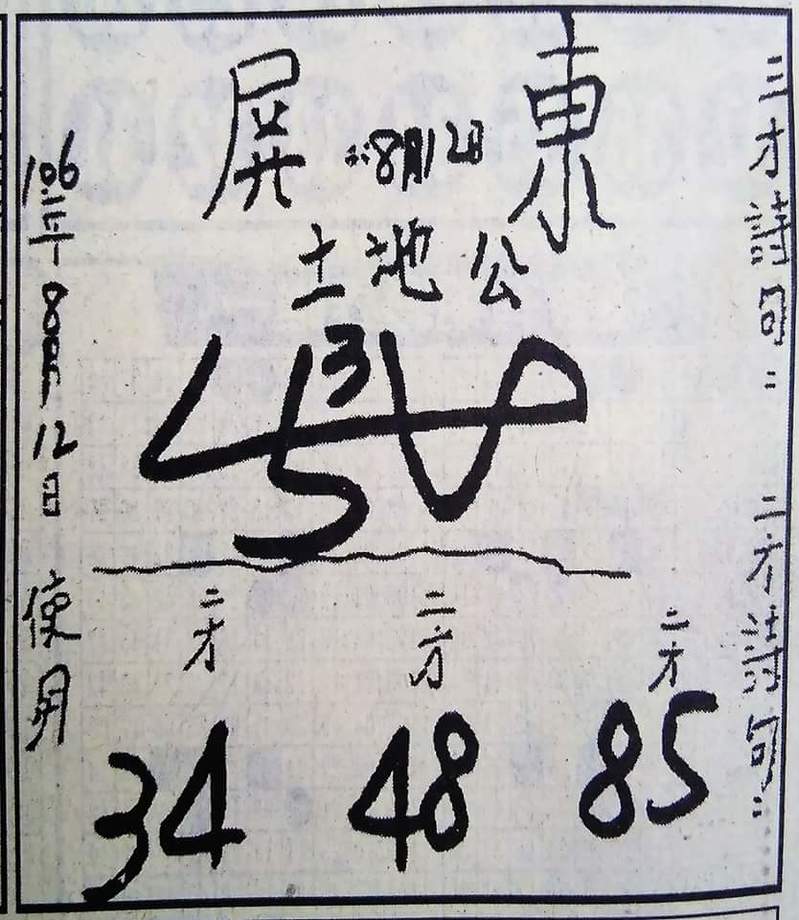 三才詩句:
二才詩句:
屏 8月12日 東
土地公
3
二才 二才 二才
34 48 85
106年8月12日 使用